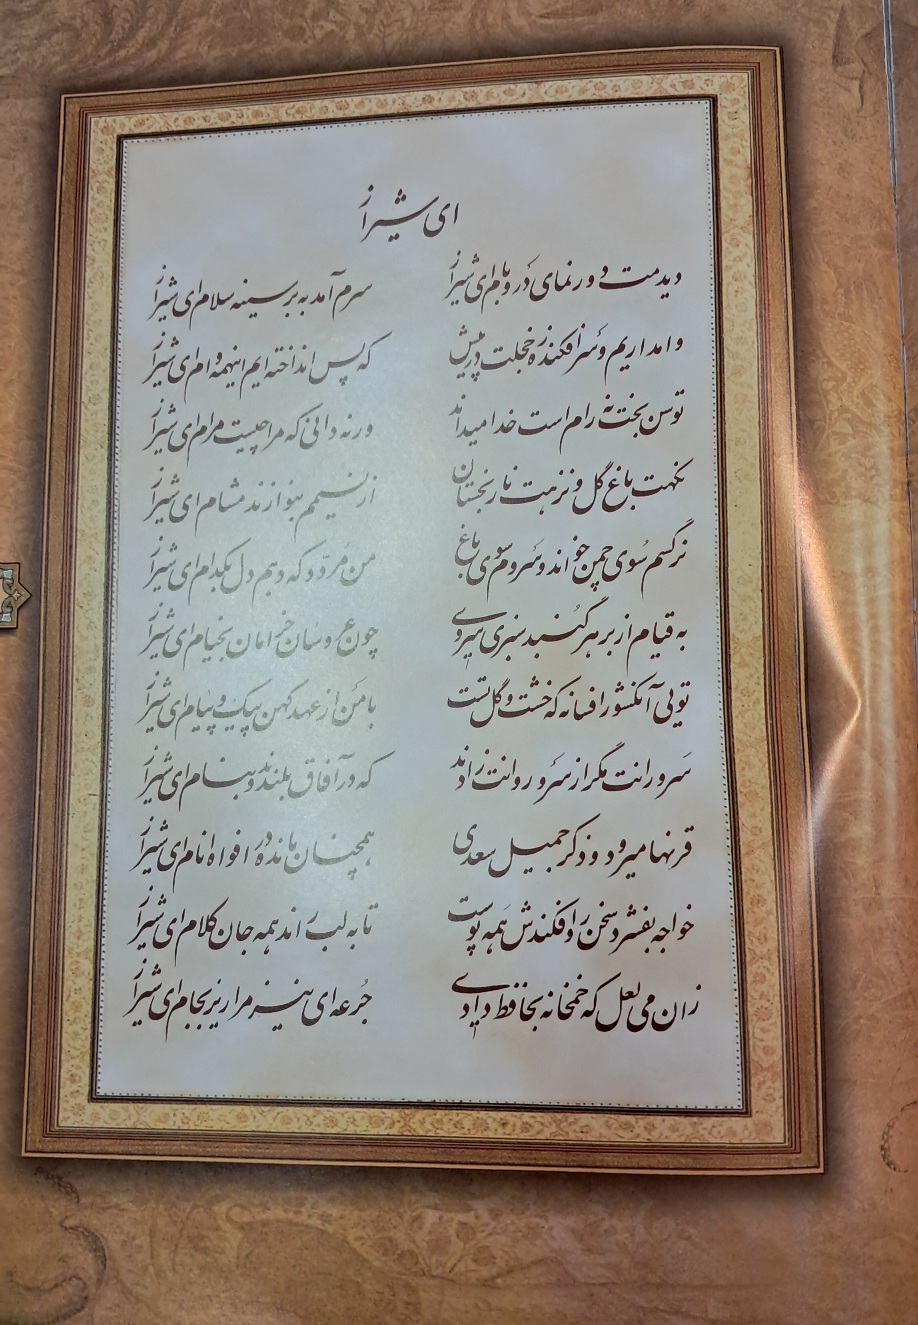 ای شیراز
دیدمت دورنمای در و بام ای شیراز سرم آمد به بر سینه سلام ای شیراز
وامداریم و سرافکنده ز خجلت در پیش که پس انداخته ایم اینهمه وام ای شیراز
توسن بخت نه رام است خدا میداند ورنه دانی که مرا چیست مرام ای شیراز
نکهت باغ گل و نزهت نارنجستان از نسیمم بنوازند مشام ای شیراز
نرگسم سوی چمن خواند و سروم سوی باغ من مردد که دهم دل بکدام ای شیراز
به قیام از بر هر گنبد سبزی سروی چون عروسان خرامان بخیام ای شیراز
تویی آنکشور افسانه که خشت و گل تست با من از عهد کهن پیک و پیام ای شیراز
سرورانت مگر از سرو روانت زادند که در آفاق بلندند و بنام ای شیراز
قرنها میرود و ذکر جمیل سعدی همچنان مانده در افواه انام ای شیراز
خواجه بفشرد سخن را و فکندش همه پوست تا به لب راند همه جان کلام ای شیراز
زان می لعل که خمخانه بحافظ دادی جرعه ای نیز مرا ریز بجام ای شیراز